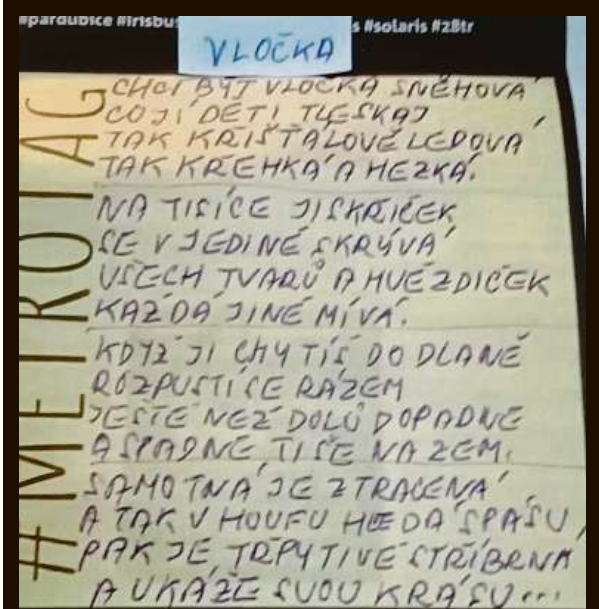 #pardubice #irisbus #solaris #28tr
VLOČKA
#METROTAG
CHCI BÝT VLOČKA SNĚHOVÁ
CO JÍ DĚTI TLESKAJ
TAK KŘIŠŤÁLOVĚ LEDOVÁ
TAK KŘEHKÁ A HEZKÁ.
NA TISÍCE JISKŘIČEK
SE V JEDINÉ SKRÝVÁ
VŠECH TVARŮ A HVĚZDIČEK
KAŽDÁ JINÉ MÍVÁ.
KDYŽ JI CHYTÍŠ DO DLANĚ
ROZPUSTÍ SE RÁZEM
JEŠTĚ NEŽ DOLŮ DOPADNE
A SPADNE TIŠE NA ZEM.
SAMOTNÁ JE ZTRACENÁ
A TAK V HOUFU HLEDÁ SPÁSU,
PAK JE TŘPYTIVĚ STŘÍBRNÁ
A UKÁŽE SVOU KRÁSU...